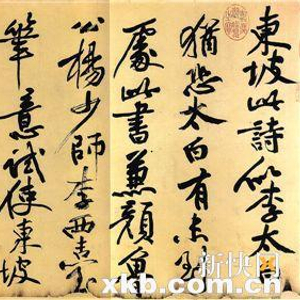 東坡此詩似李太白
猶恐太白有未到
處此書兼顏魯
公楊少師李西臺
筆意試使東坡
新快网
xkb.com.cn